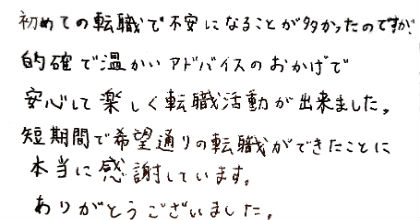 初めての転職で不安になることが多かったのですが、
的確で温かいアドバイスのおかげで
安心して楽しく転職活動が出来ました。
短期間で希望通りの転職ができたことに
本当に感謝しています。
ありがとうございました。